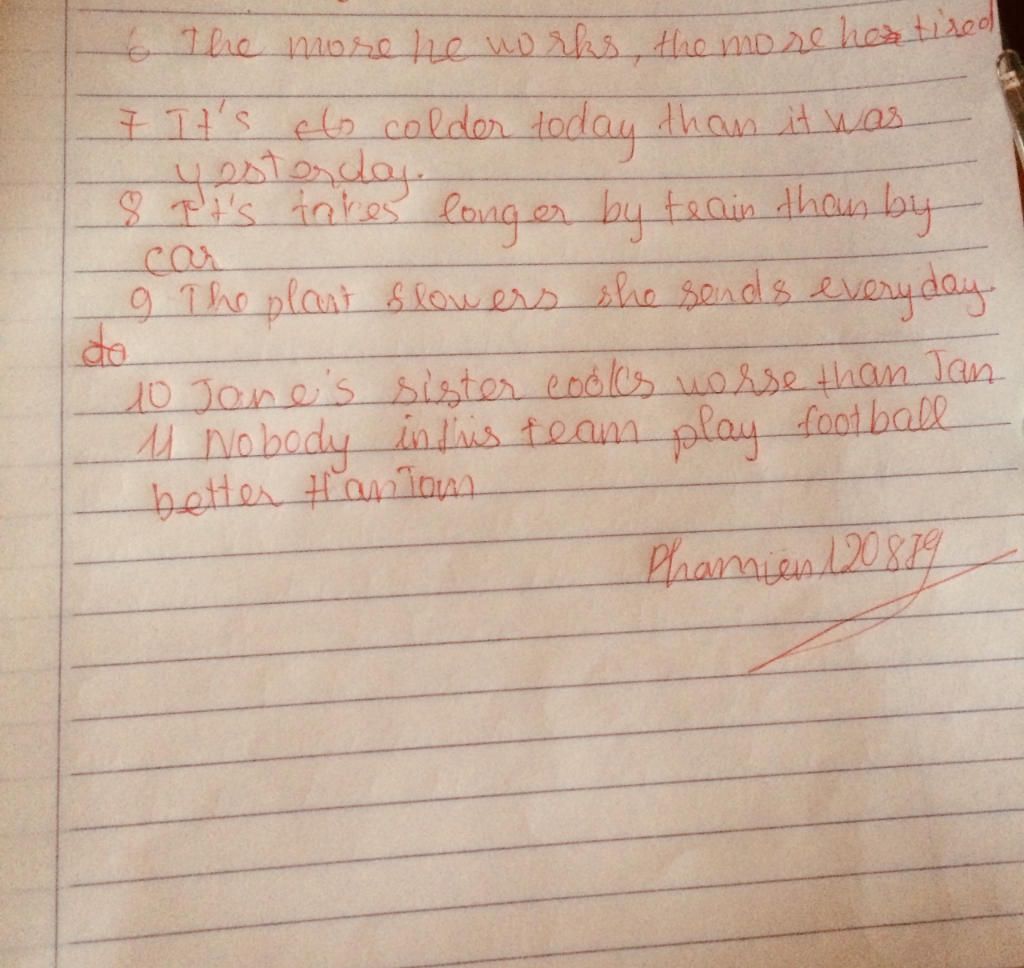 6 The more he works, the more he tired
7 It's colder today than it was
yesterday.
8 It's takes longer by train than by
car
9 The plant flowers she sends everyday.
do
10 Jane's sister cooks worse than Jan
11 Nobody in this team play football
better than Tom
Phamien120879